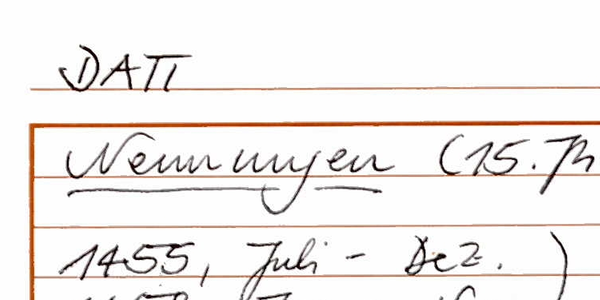 DATI
Nennungen (15. Jh
1455, Juli - Dez. )